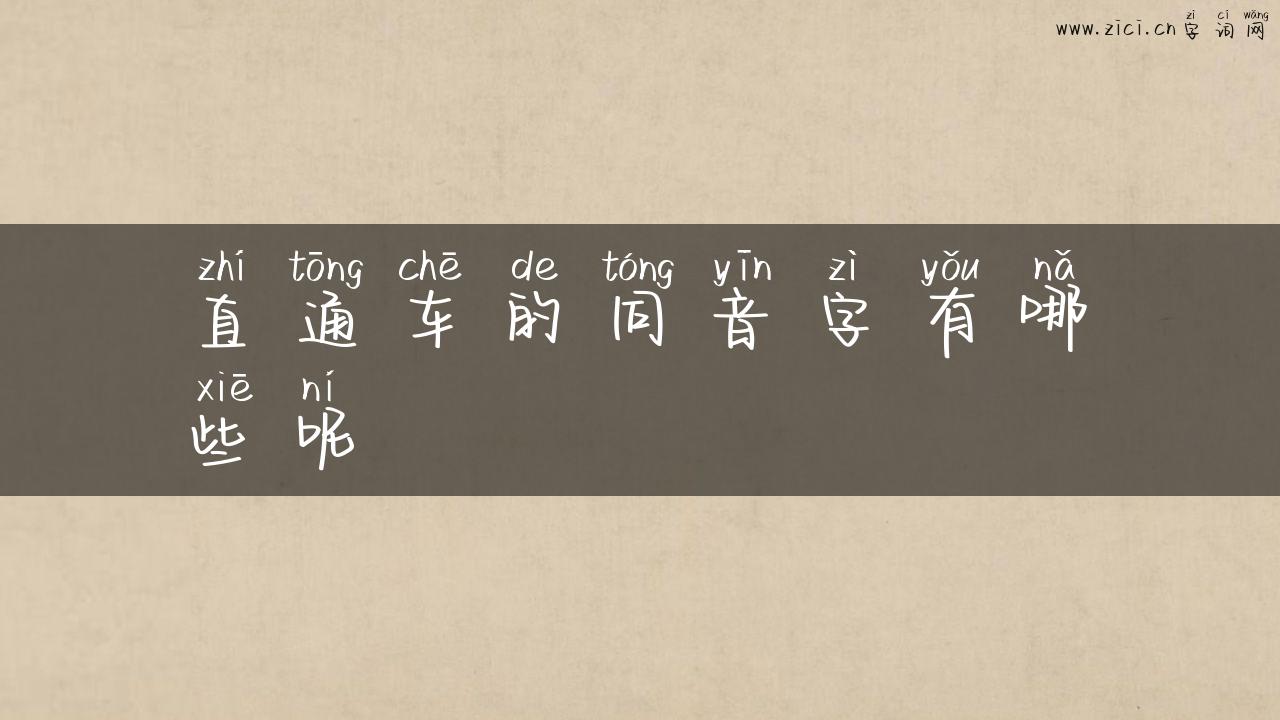 zì cí wǎng
www.zici.cn 字 词 网
zhí tōng chē de tóng yīn zì yǒu nǎ
直 通 车 的 同 音 字 有 哪
xiē ní
些 呢